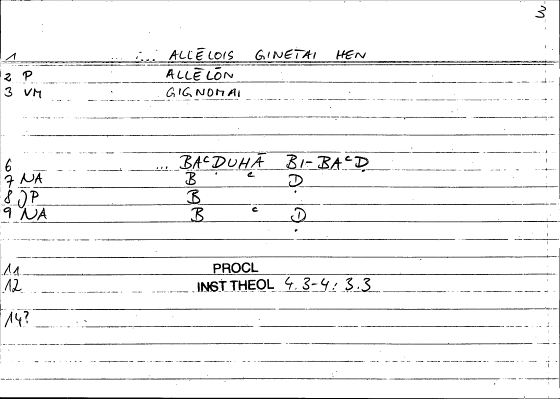 3
1 ... ALLĒLOIS GINETAI HEN
2 P ALLĒLŌN
3 VM GIGNOMAI
6 ... BAᶜḌUHĀ BI-BAᶜḌ
7 NA B ᶜ Ḍ
8 JP B
9 NA B ᶜ Ḍ
11 PROCL
12 INST THEOL 4.3-4: 3.3
14?